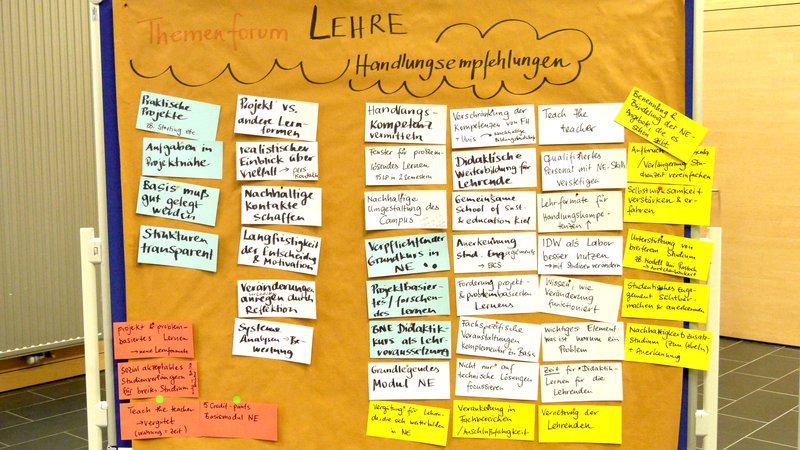 Themenforum LEHRE
Handlungsempfehlungen
Praktische
Projekte
zB. Starling etc
Aufgaben in
Projektnähe
Basis muß
gut gelegt
werden
Strukturen
transparent
Projekt vs.
andere Lern-
formen
realistischer
Einblick über
Vielfalt → pers.
Nachhaltige
Kontakte
schaffen
Langfristigkeit
der Entscheidung
& Motivation
Veränderungen
anregen durch
Reflektion
Systeme
Analysen → Be-
wertung
Handlungs-
Kompetenz
vermitteln
Fenster für problem-
lösendes Lernen
15 LP in 2 Semestern
Nachhaltige
Umgestaltung des
Campus
Verpflichtender
Grundkurs in
NE
Projektbasier-
tes/forschendes
lernen
BNE Didaktik-
kurs als Lehr-
voraussetzung
Grundlegendes
Modul NE
Vergütung für Lehren-
de, die sich weiterbilden
in NE
Verschränkung der
Kompetenzen von FH
+ Uni → nachhaltige
Didaktische
Weiterbildung für
Lehrende
Gemeinsame
School of Sust.
& education Kiel
Anerkennung
Stud. Engagements
→ ECS
Förderung projekt-
& problembasierten
Lernens
Fachspezifische
Veranstaltungen
Komplementär zu Basis
Nicht nur auf
technische Lösungen
fokussieren
Verankerung in
Fachbereichen
/Anschlußfähigkeit
Teach the
teacher
Qualifiziertes
Personal mit NE-Skills
verstetigen
Lehrformate für
Handlungskompe-
tenzen
IDW als Labor
besser nutzen
→ mit Studies verändern
Wissen, wie
Veränderung
funktioniert
wichtiges Element
was ist warum ein
Problem
Zeit für Didaktik-
Lernen für die
Lehrenden
Vernetzung der
Lehrenden
Benennung &
Bündelung der NE-
Angebote, die es
schon gibt
Aufbruch
/Verlängerung Stu-
dienzeit vereinfachen
Selbstwirksamkeit
verstärken & er-
fahren
Unterstützung von
breiteren Studium
zB. Modell Uni Rostock
Studentisches Eng-
agement sichtbar
machen & anerkennen
Nachhaltigkeitszusatz-
studium (zum Lübeln)
+ Anerkennung
projekt & problem-
basiertes Lernen
→ neue Lernformate
Sozial akzeptables
Studienverlängern
für breites Studium
Teach the teacher
→ vergütet
(währung = Zeit)
5 Credit-points
Basismodul NE